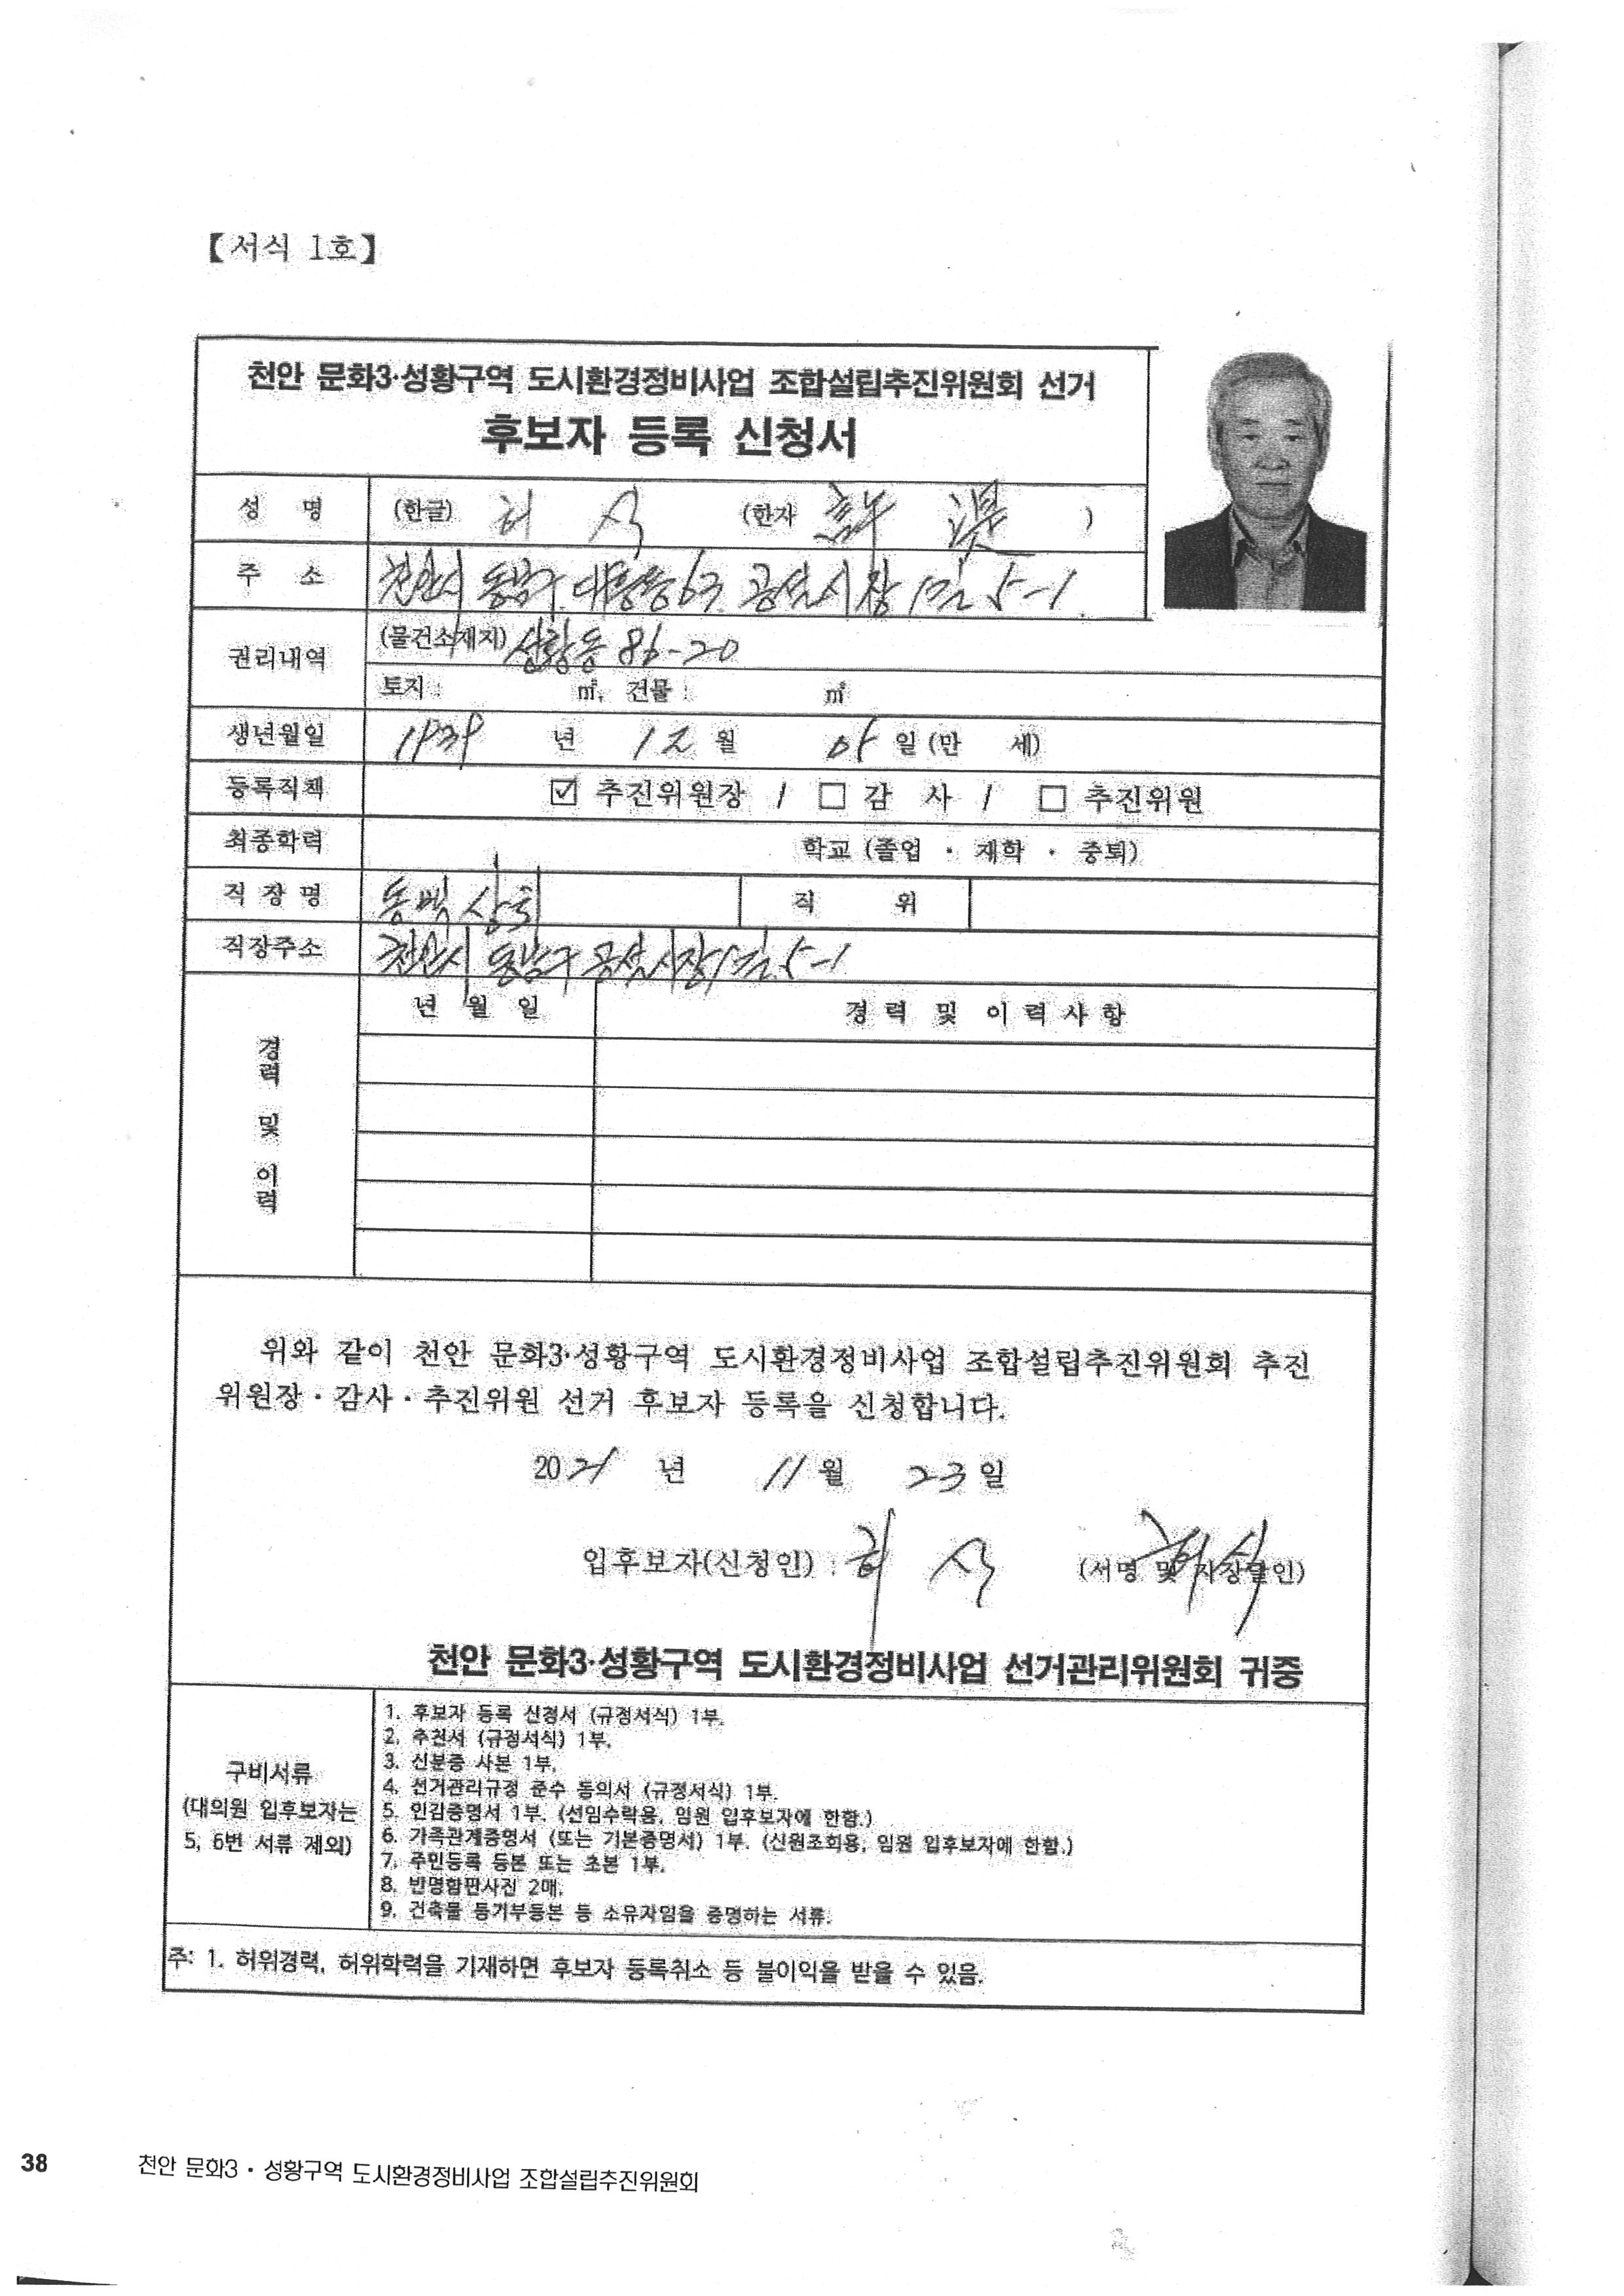 【서식 1호】
천안 문화3·성황구역 도시환경정비사업 조합설립추진위원회 선거
후보자 등록 신청서
성 명 (한글) 허 식 (한자 )
주 소 천안시 동남구 대흥동 63 공설시장 1길 5-1
권리내역 (물건소재지) 성황동 86-20
토지 : ㎡, 건물 : ㎡
생년월일 1939 년 12 월 일 (만 세)
등록직책 ☑ 추진위원장 / □ 감 사 / □ 추진위원
최종학력 학교 (졸업 · 재학 · 중퇴)
직 장 명 동백상회 직 위
직장주소 천안시 동남구 공설시장1길 5-1
경력 및 이력 년 월 일 경 력 및 이 력 사 항
위와 같이 천안 문화3·성황구역 도시환경정비사업 조합설립추진위원회 추진
위원장·감사·추진위원 선거 후보자 등록을 신청합니다.
2021 년 11 월 23 일
입후보자(신청인) : 허 식 (서명 및 지장날인) 허식
천안 문화3·성황구역 도시환경정비사업 선거관리위원회 귀중
구비서류
(대의원 입후보자는
5, 6번 서류 제외)
1. 후보자 등록 신청서 (규정서식) 1부.
2. 추천서 (규정서식) 1부.
3. 신분증 사본 1부.
4. 선거관리규정 준수 동의서 (규정서식) 1부.
5. 인감증명서 1부. (선임수락용, 임원 입후보자에 한함.)
6. 가족관계증명서 (또는 기본증명서) 1부. (신원조회용, 임원 입후보자에 한함.)
7. 주민등록 등본 또는 초본 1부.
8. 반명함판사진 2매.
9. 건축물 등기부등본 등 소유자임을 증명하는 서류.
주: 1. 허위경력, 허위학력을 기재하면 후보자 등록취소 등 불이익을 받을 수 있음.
38 천안 문화3 · 성황구역 도시환경정비사업 조합설립추진위원회